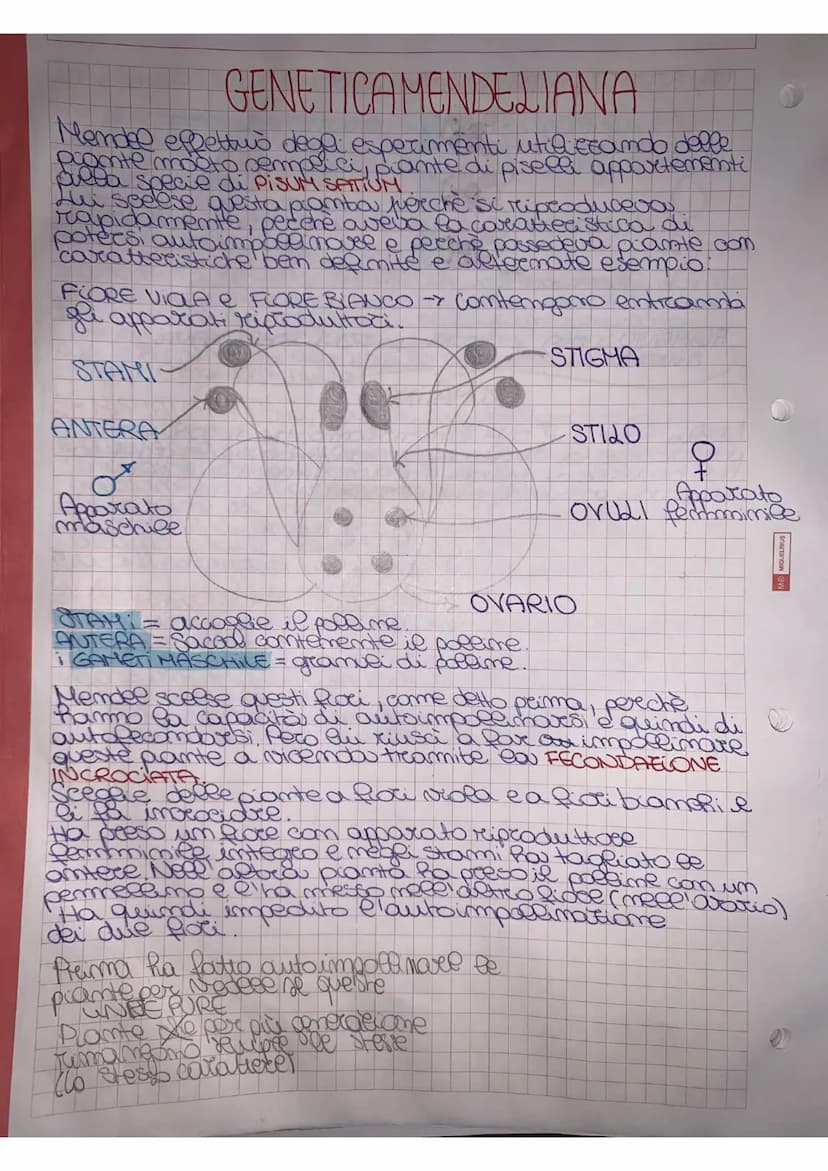 GENETICA MENDELIANA
Mendel effettuò degli esperimenti utilizzando delle
piante molto semplici, piante di piselli appartementi
alla specie di PISUM SATIUM.
Lui scelse questa pianta perchè si riproduceva
rapidamente, perchè aveva la caratteristica di
potersi autoimpollinare e perchè possedeva piante con
caratteristiche ben definite e alternate esempio:
FIORE VIOLA e FIORE BIANCO → contengono entrambi
gli apparati riproduttori.
STAMI
STIGMA
ANTERA
STILO
♀
♂
Apparato
maschile
OVULI
Apparato
femminile
MIQUELRIUS
OVARIO
STAMI = accoglie il polline.
ANTERA = Sacca contenente il polline.
i GAMETI MASCHILE = granuli di polline.
Mendel scelse questi fiori, come detto prima, perchè
hanno la capacità di autoimpollinarsi e quindi di
autofecondarsi. Però lui riuscì a far impollinare
queste piante a vicenda tramite la FECONDAZIONE
INCROCIATA.
Sceglie delle piante a fiori viola e a fiori bianchi e
li fa incrociare.
Ha preso un fiore con apparato riproduttore
femminile integro e negli stami ha tagliato le
antere. Nell'altra pianta ha preso il polline con un
pennellino e l'ha messo nell'altro fiore (nell'ovario)
Ha quindi impedito l'autoimpollinazione
dei due fiori.
Prima ha fatto autoimpollinare le
piante per vedere se queste
LINEE PURE
Piante che per più generazione
rimangono sempre le stesse
(lo stesso carattere)